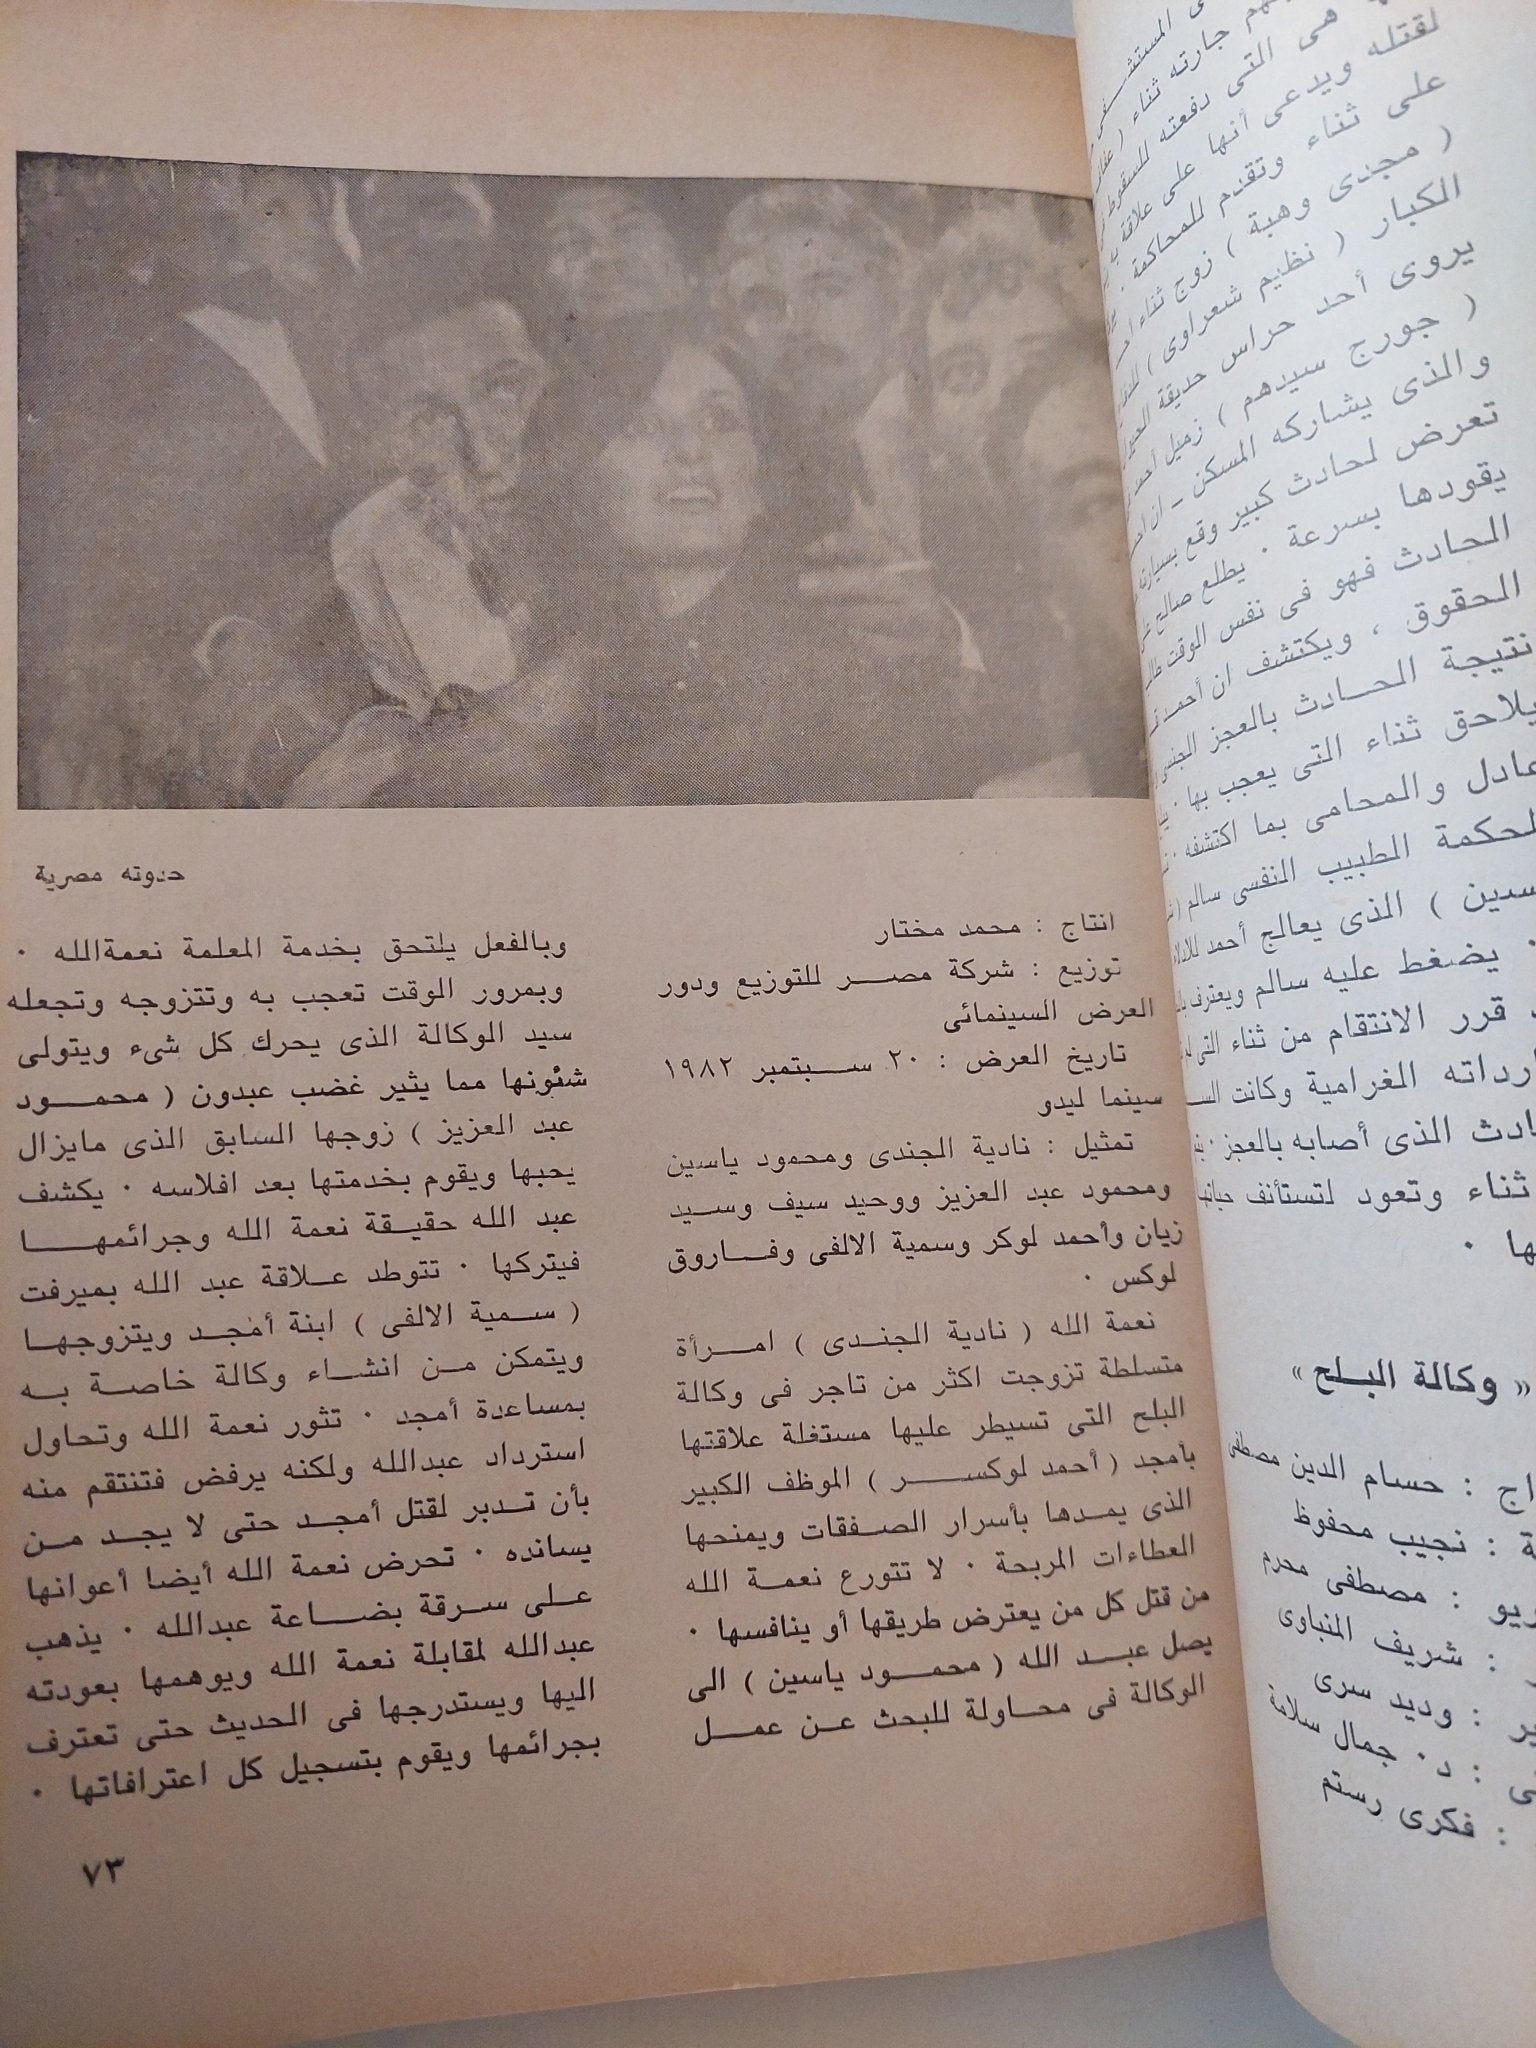 لقتله ويدعى أنها على علاقة
على ثناء وتقدم للمحاكمة ٠
( مجدى وهبة ) زوج ثناء
الكبار ( نظيم شعراوى )
يروى أحد حراس حديقة
( جورج سيدهم ) زميل أحمد
والذى يشاركه المسكن – ان
تعرض لحادث كبير وقع بسيارته
يقودها بسرعة ٠ يطلع صالح
الحادث فهو فى نفس الوقت
الحقوق ، ويكتشف ان أحمد
نتيجة الحادث بالعجز الجنسى
يلاحق ثناء التى يعجب بها ٠
والمحامى بما اكتشفه ٠
الطبيب النفسى سالم
) الذى يعالج أحمد
٠ يضغط عليه سالم ويعترف
قرر الانتقام من ثناء التى
الغرامية وكانت
الذى أصابه بالعجز ٠
ثناء وتعود لتستأنف حياتها
« وكالة البلح »
: حسام الدين مصطفى
: نجيب محفوظ
: مصطفى محرم
: شريف المنباوى
: وديد سرى
: د ٠ جمال سلامة
: فكرى رستم
حدوته مصرية
انتاج : محمد مختار
توزيع : شركة مصر للتوزيع ودور
العرض السينمائى
تاريخ العرض : ٢٠ سبتمبر ١٩٨٢
سينما ليدو
تمثيل : نادية الجندى ومحمود ياسين
ومحمود عبد العزيز ووحيد سيف وسيد
زيان وأحمد لوكر وسمية الالفى وفاروق
لوكس ٠
نعمة الله ( نادية الجندى ) امرأة
متسلطة تزوجت اكثر من تاجر فى وكالة
البلح التى تسيطر عليها مستغلة علاقتها
بأمجد ( أحمد لوكسر ) الموظف الكبير
الذى يمدها بأسرار الصفقات ويمنحها
العطاءات المربحة ٠ لا تتورع نعمة الله
من قتل كل من يعترض طريقها أو ينافسها ٠
يصل عبد الله ( محمود ياسين ) الى
الوكالة فى محاولة للبحث عن عمل
وبالفعل يلتحق بخدمة المعلمة نعمةالله ٠
وبمرور الوقت تعجب به وتتزوجه وتجعله
سيد الوكالة الذى يحرك كل شىء ويتولى
شئونها مما يثير غضب عبدون ( محمود
عبد العزيز ) زوجها السابق الذى مايزال
يحبها ويقوم بخدمتها بعد افلاسه ٠ يكشف
عبد الله حقيقة نعمة الله وجرائمها
فيتركها ٠ تتوطد علاقة عبد الله بميرفت
( سمية الالفى ) ابنة أمجد ويتزوجها
ويتمكن من انشاء وكالة خاصة به
بمساعدة أمجد ٠ تثور نعمة الله وتحاول
استرداد عبدالله ولكنه يرفض فتنتقم منه
بأن تدبر لقتل أمجد حتى لا يجد من
يسانده ٠ تحرض نعمة الله أيضا أعوانها
على سرقة بضاعة عبدالله ٠ يذهب
عبدالله لمقابلة نعمة الله ويوهمها بعودته
اليها ويستدرجها فى الحديث حتى تعترف
بجرائمها ويقوم بتسجيل كل اعترافاتها ٠
٧٣